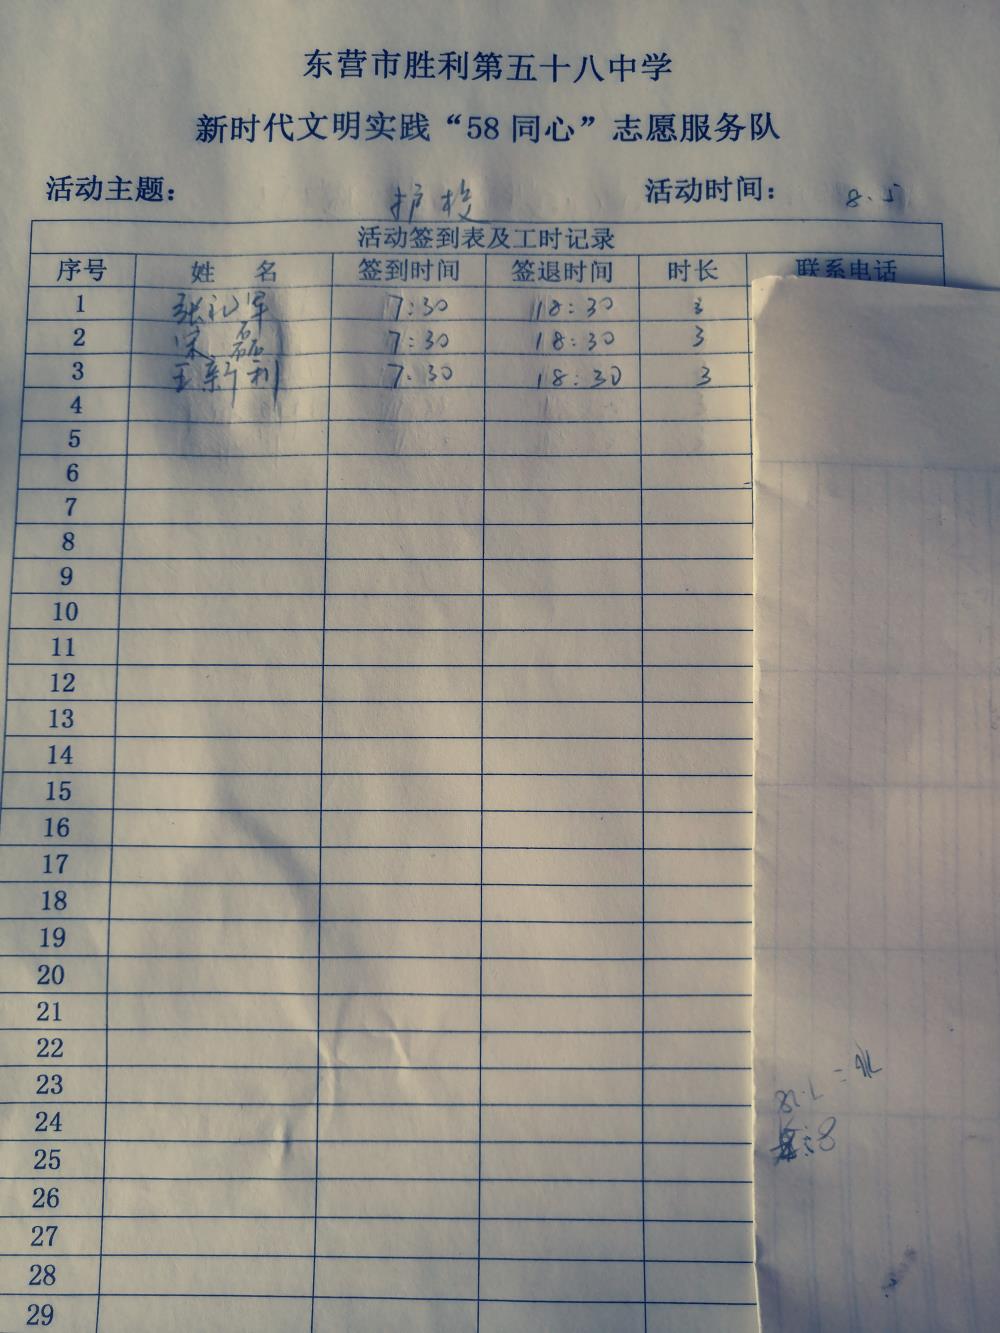 东营市胜利第五十八中学
新时代文明实践“58同心”志愿服务队
活动主题： 护校 活动时间： 8.5
活动签到表及工时记录
序号 姓 名 签到时间 签退时间 时长 联系电话
1 张礼军 7:30 18:30 3
2 宋磊 7:30 18:30 3
3 王新利 7:30 18:30 3
4
5
6
7
8
9
10
11
12
13
14
15
16
17
18
19
20
21
22
23
24
25
26
27
28
29